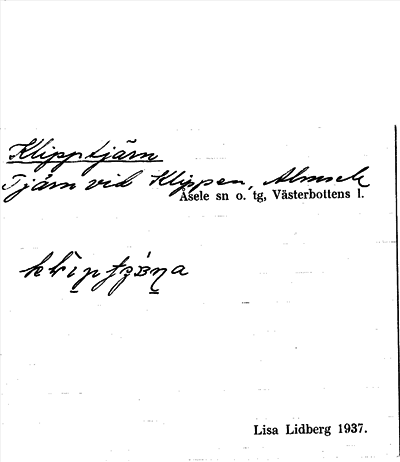 Klipptjärn
Tjärn vid Klippen, Almsele
Åsele sn o. tg, Västerbottens l.
Lisa Lidberg 1937.